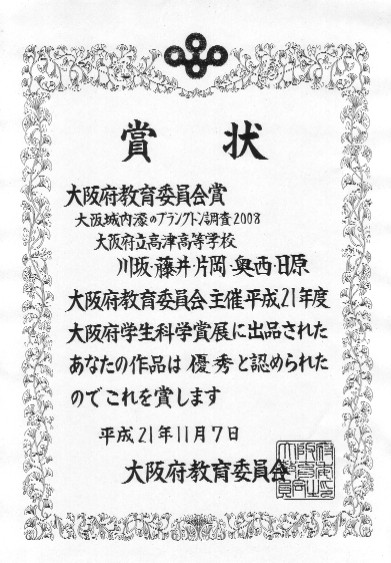 賞状
大阪府教育委員会賞
大阪城内濠のプランクトン調査2008
大阪府立高津高等学校
川坂・藤井・片岡・奥西・日原
大阪府教育委員会主催平成21年度
大阪府学生科学賞展に出品された
あなたの作品は優秀と認められた
のでこれを賞します
平成21年11月7日
大阪府教育委員会